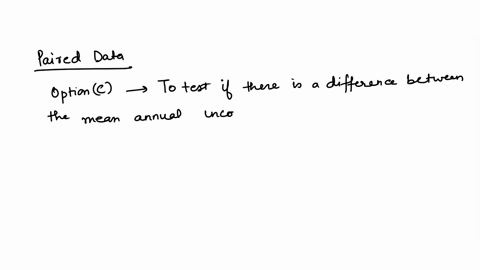 Paired Data
Option(C) → To test if there is a difference between
the mean annual inco